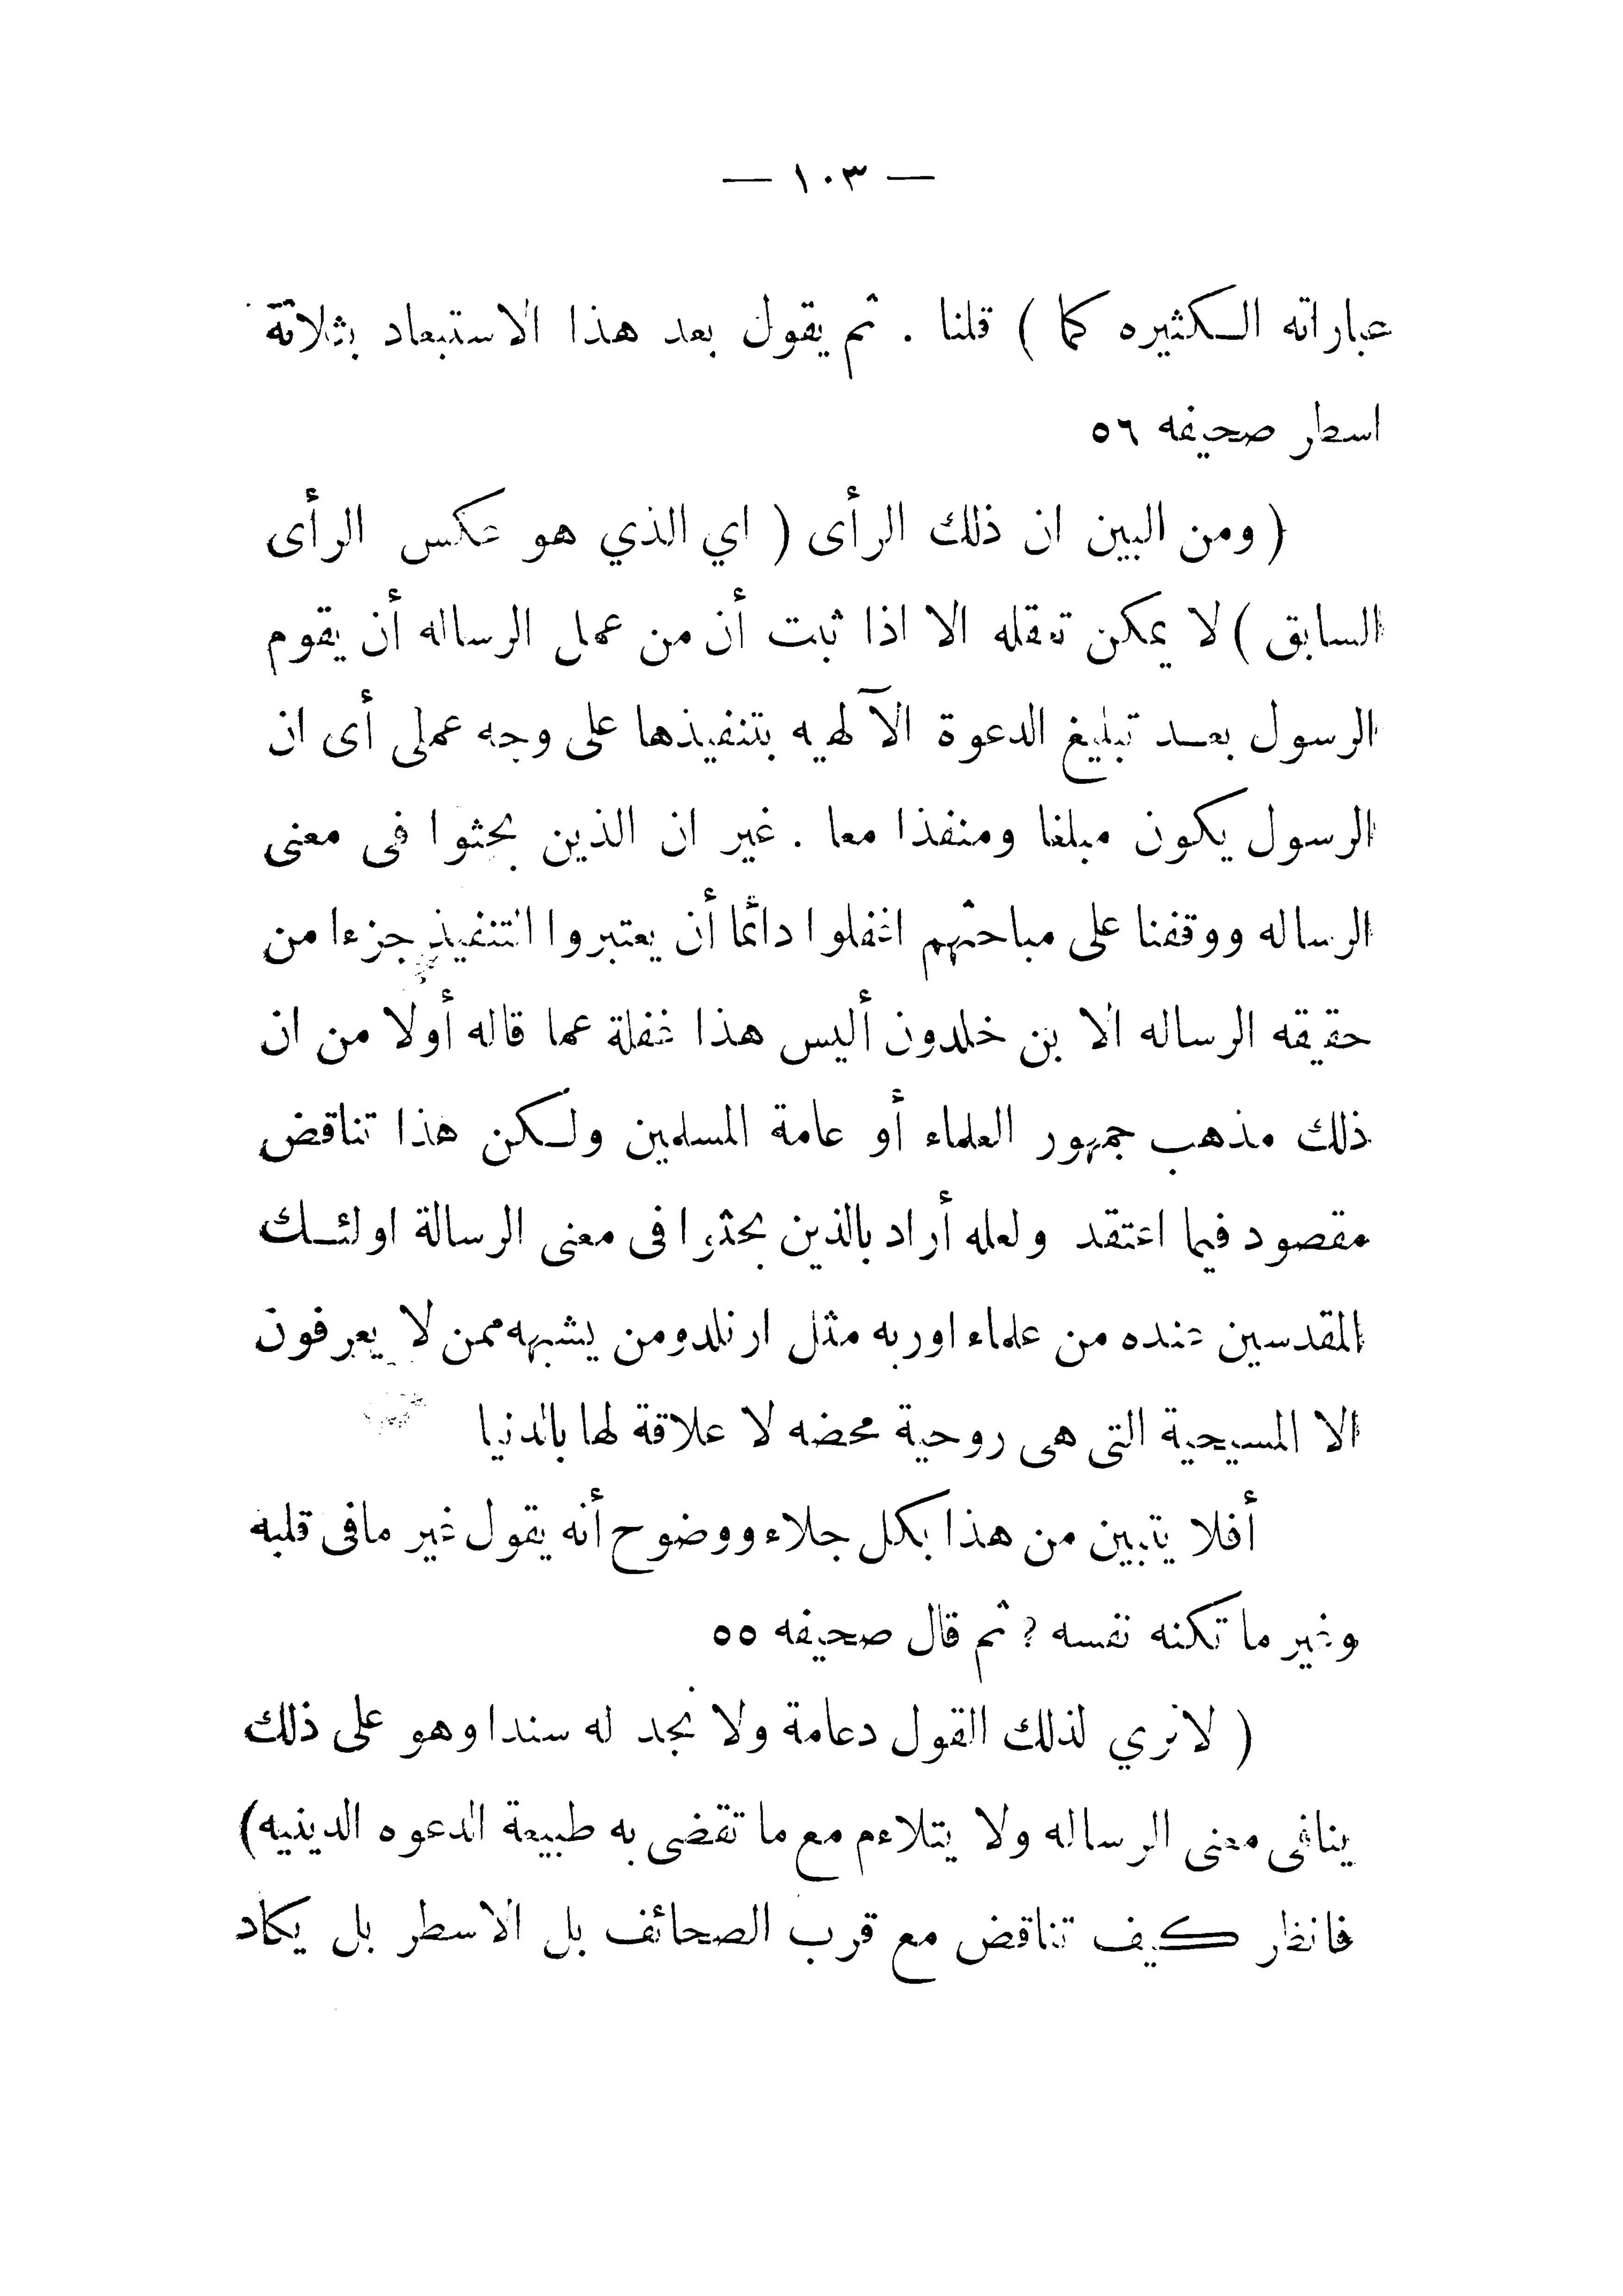 — ١٠٣ —
عباراته الكثيره كما ) قلنا . ثم يقول بعد هذا الاستبعاد بثلاثة
اسطر صحيفه ٥٦
( ومن البين ان ذلك الرأى ( اي الذي هو عكس الرأى
السابق ) لا يمكن تعقله الا اذا ثبت أن من عمل الرساله أن يقوم
الرسول بعد تبليغ الدعوة الآلهيه بتنفيذها على وجه عملى أى ان
الرسول يكون مبلغا ومنفذا معا . غير ان الذين بحثوا فى معنى
الرساله ووقفنا على مباحثهم اغفلوا دائما أن يعتبروا التنفيذ جزءا من
حقيقه الرساله الا بن خلدون أليس هذا غفلة عما قاله أولا من ان
ذلك مذهب جمهور العلماء أو عامة المسلمين ولكن هذا تناقض
مقصود فيما اعتقد ولعله أراد بالذين بحثوا فى معنى الرسالة اولئك
المقدسين عنده من علماء اوربه مثل ارنلدومن يشبهه ممن لا يعرفون
الا المسيحية التى هى روحية محضه لا علاقة لها بالدنيا
أفلا يتبين من هذا بكل جلاء ووضوح أنه يقول غير مافى قلبه
وغير ما تكنه نفسه ? ثم قال صحيفه ٥٥
( لا نري لذلك القول دعامة ولا نجد له سندا وهو على ذلك
ينافى معنى الرساله ولا يتلاءم مع ما تقضى به طبيعة الدعوه الدينيه)
فانظر كيف تناقض مع قرب الصحائف بل الاسطر بل يكاد